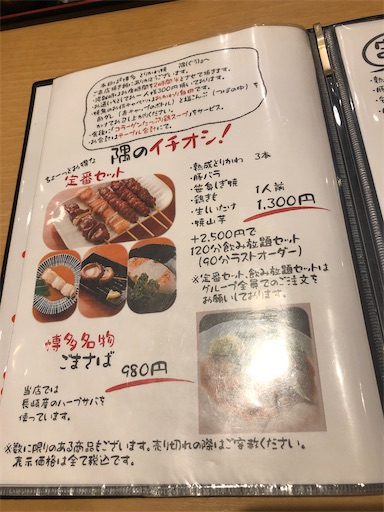 ご来店誠にありがとうございます。
隅のイチオシ!
ちょーっとお得な
定番セット
・熟成とりかわ 3本
・豚バラ
・笹身しぎ焼
・鶏きも
・生しいたけ
・焼山芋
1人前
1,300円
+2,500円で
120分飲み放題セット
(90分ラストオーダー)
※定番セット、飲み放題セットは
グループ全員でのご注文を
お願いしております。
博多名物
ごまさば
980円
当店では
長崎産のハーブサバを
使っています。
※数に限りのある商品もございます。売り切れの際はご容赦ください。
表示価格は全て税込です。